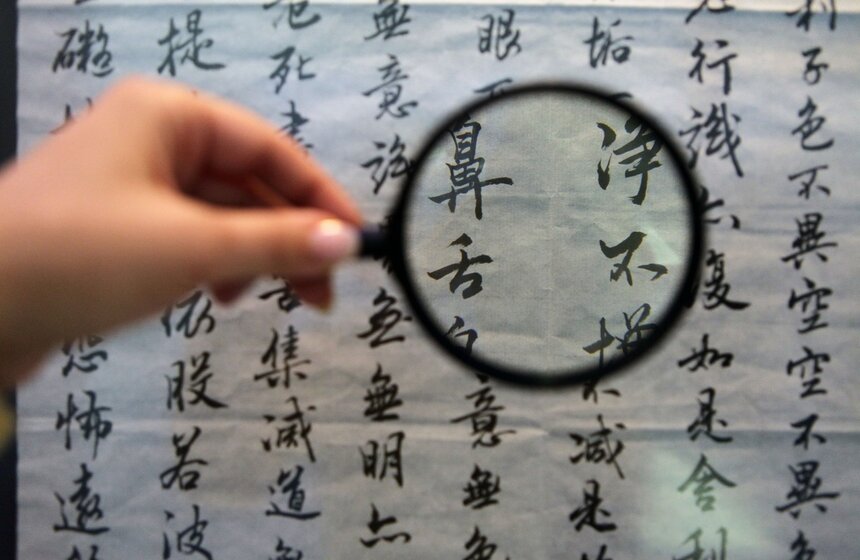 利子色不異空空不異色
行識亦復如是舍利
垢不淨不增不減是故
眼耳鼻舌身意無色
無意識無無明亦
死盡苦集滅道無
提依般若波
礙恐怖遠